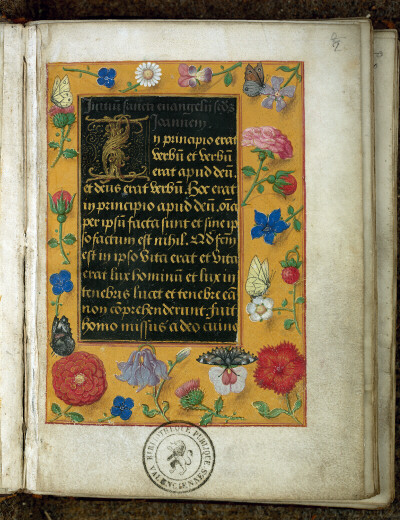 Initiū sancti euangelii sedz
Joannem.
In principio erat
verbū et verbū
erat apud deū.
et deus erat verbū. Hoc erat
in principio apud deū. oīa
per ipsū facta sunt et sine ip
so factum est nihil. Qd fctū
est in ipso vita erat et vita
erat lux hominū et lux in
tenebris lucet et tenebre eā
non cōprehenderunt. Fuit
homo missus a deo cui no
BIBLIOTHEQUE PUBLIQUE
VALENCIENNES